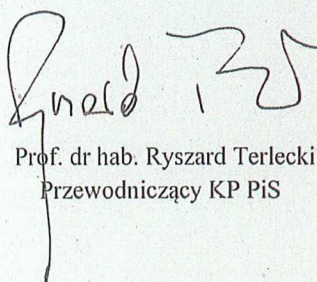 Prof. dr hab. Ryszard Terlecki
Przewodniczący KP PiS